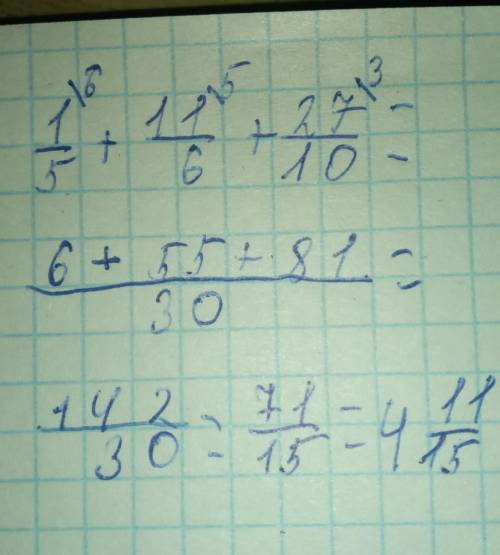 1/5\6 + 11/6\5 + 27/10\3 =
6 + 55 + 81 / 30 =
142/30 = 71/15 = 4 11/15